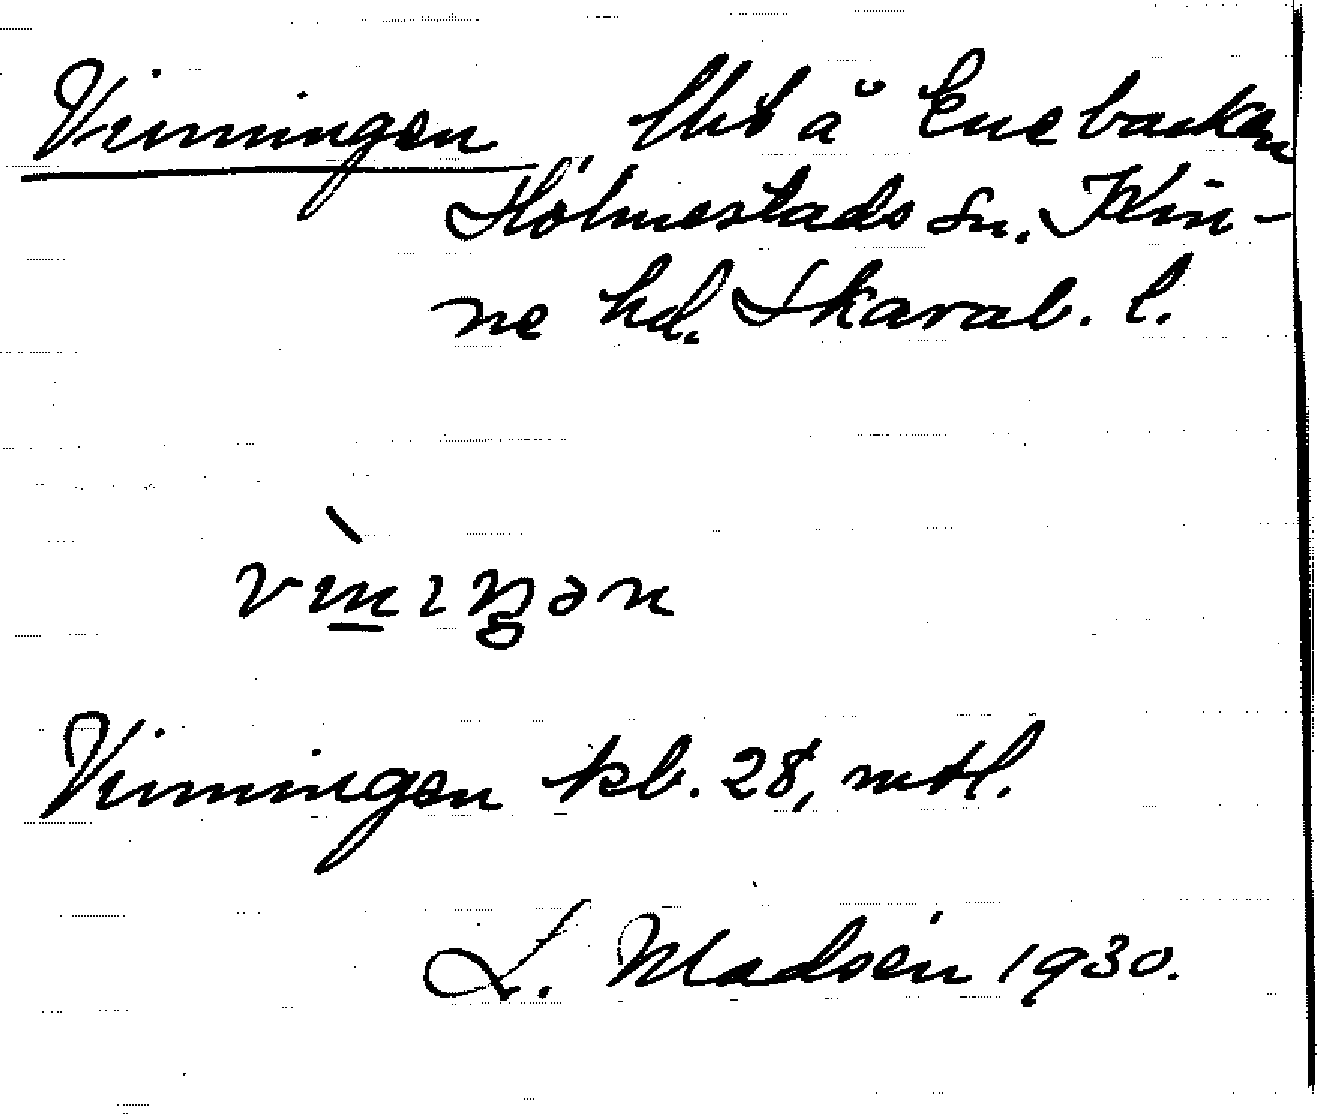 Vinningen Utb å Enebacken
Holmestads sn. Kin-
ne hd. Skarab. l.
vìnıŋən
Vinningen kb. 28, mtl.
L. Madsén 1930.